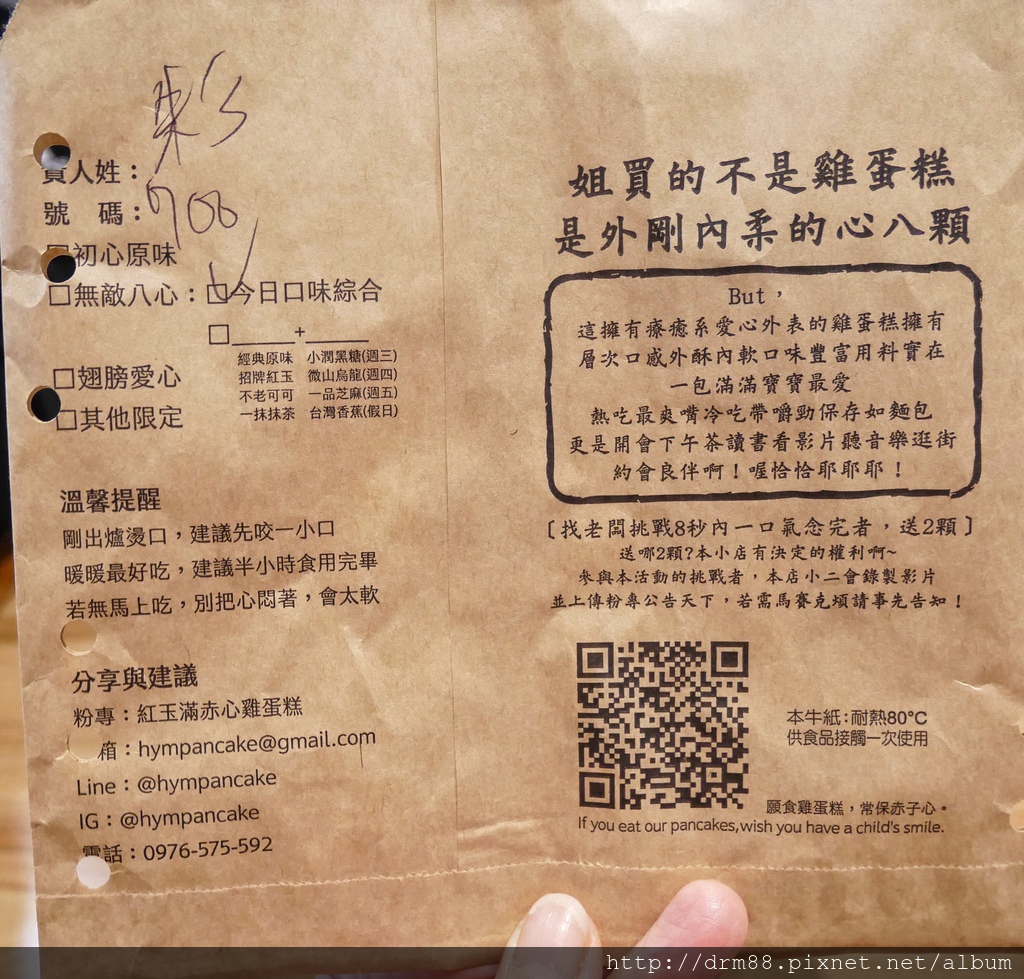 彩
貴人姓：
號 碼：700
□初心原味
□無敵八心：□今日口味綜合
□____+____
經典原味 小潤黑糖(週三)
招牌紅玉 微山烏龍(週四)
不老可可 一品芝麻(週五)
一抹抹茶 台灣香蕉(假日)
□翅膀愛心
□其他限定
溫馨提醒
剛出爐燙口，建議先咬一小口
暖暖最好吃，建議半小時食用完畢
若無馬上吃，別把心悶著，會太軟
分享與建議
粉專：紅玉滿赤心雞蛋糕
箱：hympancake@gmail.com
Line：@hympancake
IG：@hympancake
電話：0976-575-592
姐買的不是雞蛋糕
是外剛內柔的心八顆
But，
這擁有療癒系愛心外表的雞蛋糕擁有
層次口感外酥內軟口味豐富用料實在
一包滿滿寶寶最愛
熱吃最爽嘴冷吃帶嚼勁保存如麵包
更是開會下午茶讀書看影片聽音樂逛街
約會良伴啊！喔恰恰耶耶耶！
〔找老闆挑戰8秒內一口氣念完者，送2顆〕
送哪2顆?本小店有決定的權利啊~
參與本活動的挑戰者，本店小二會錄製影片
並上傳粉專公告天下，若需馬賽克煩請事先告知！
本牛紙：耐熱80°C
供食品接觸一次使用
願食雞蛋糕，常保赤子心。
If you eat our pancakes,wish you have a child's smile.
http://drm88.pixnet.net/album